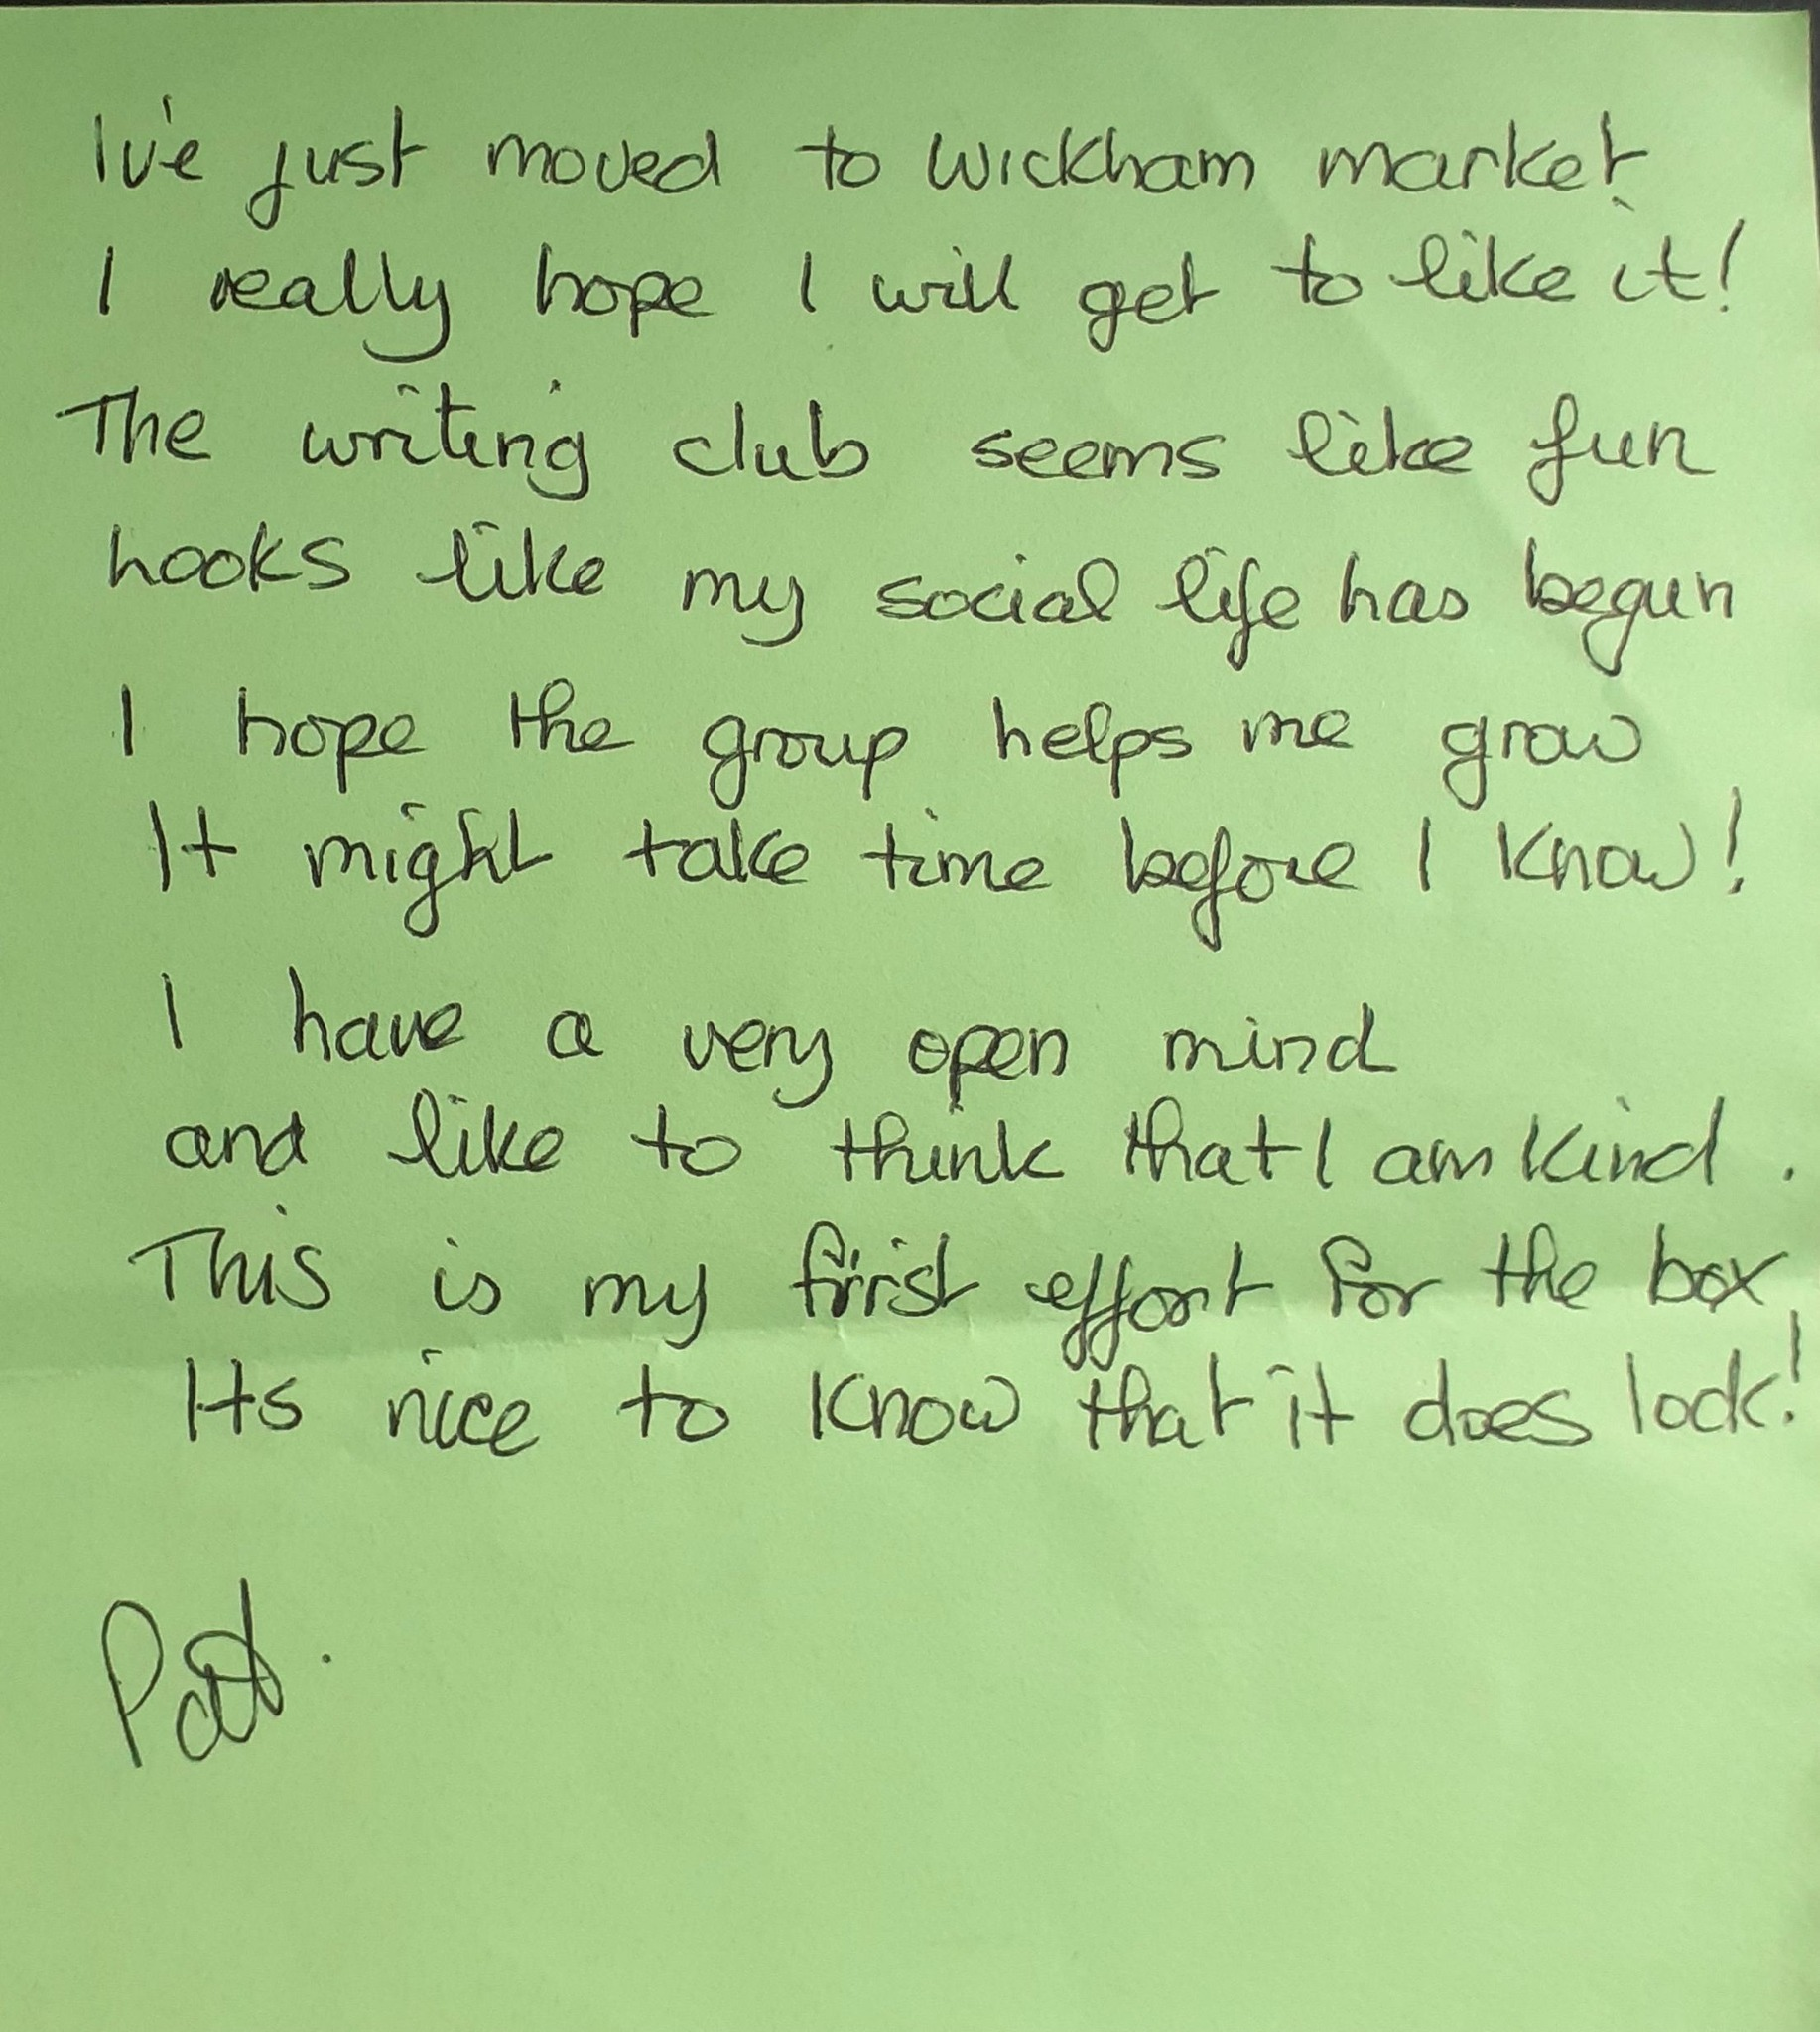 I've just moved to Wickham market.
I really hope I will get to like it!
The writing club seems like fun
Looks like my social life has begun
I hope the group helps me grow
It might take time before I know!
I have a very open mind
and like to think that I am kind.
This is my first effort for the box,
Its nice to know that it does lock!
Pat.